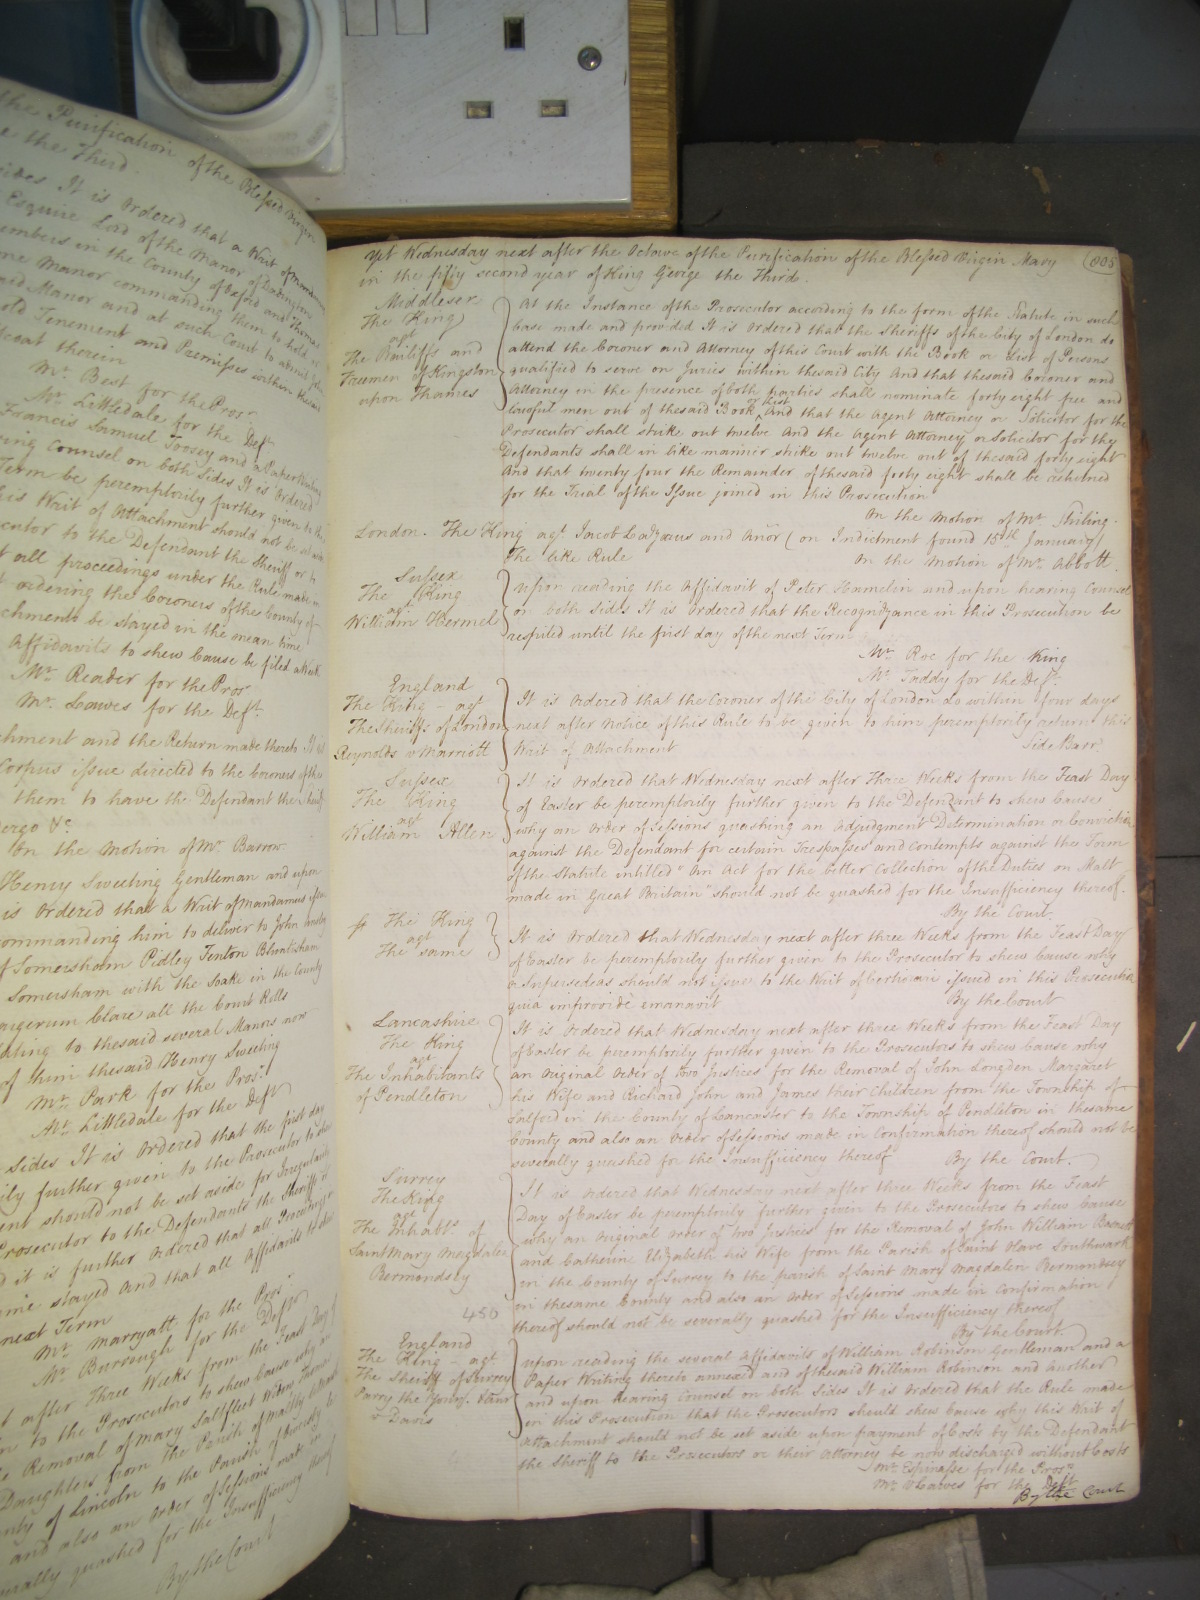 the Purification of the Blessed Virgin
e the Third.
sides It is ordered that a Writ of Mandamus
Esquire Lord of the Manor of
umbers in the County of Oxford and Thomas
me Manor commanding them to hold
said Manor and at such Court to admit John
old Tenement and Premisses within the said
therein
Mr. Best for the Pros.r
Mr. Littledale for the Deft.
Francis Samuel Toosey and a Paper Writing
ring Counsel on both sides It is ordered
Term be peremptorily further given to the
his Writ of Attachment should not be set aside
cutor to the Defendant the Sheriff or to
t all proceedings under the Rule made in
t ordering the Coroners of the County of
chment be stayed in the mean time
Affidavits to shew Cause be filed a Week
Mr. Reader for the Pros.r
Mr. Lawes for the Deft.
chment and the Return made thereto It is
Corpus issue directed to the Coroners of the
them to have the Defendant the Sheriff
ergo &c.
On the Motion of Mr. Barrow.
Henry Sweeting Gentleman and upon
is ordered that a Writ of Mandamus issue
commanding him to deliver to John
f Somersham Pidley Fenton Bluntisham
Somersham with the Soake in the County
the Court Rolls
ting to the said several Manors now
of him the said Henry Sweeting
Mr. Park for the Pros.r
Mr. Littledale for the Deft
Sides It is ordered that the first day
ily further given to the Prosecutor to shew
ent should not be set aside for Irregularity
Prosecutor to the Defendants the Sheriff if
d it is further ordered that all Proceedings
time stayed And that all Affidavits to shew
next Term
Mr. Marryatt for the Pros.r
Mr. Burrough for the Deft.
t after Three Weeks from the Feast Day of
n to the Prosecutors to shew Cause why an
e Removal of Mary Saltfleet Widow
Daughters from the Parish of
nty of Lincoln to the Parish of
and also an Order of Sessions made in
erally quashed for the Insufficiency thereof
By the Court
Yet Wednesday next after the Octave of the Purification of the Blessed Virgin Mary (805
in the fifty second year of King George the Third.
Middlesex
The King
agt.
The Bailiffs and
Freemen of Kingston
upon Thames
At the Instance of the Prosecutor according to the form of the Statute in such
Case made and provided It is ordered that the Sheriffs of the City of London do
attend the Coroner and Attorney of this Court with the Book or List of Persons
qualified to serve on Juries within the said City And that the said Coroner and
Attorney in the presence of both parties shall nominate forty eight free and
lawful men out of the said Book or List And that the Agent Attorney or Solicitor for the
Prosecutor shall strike out twelve And the Agent Attorney or Solicitor for the
Defendants shall in like manner strike out twelve out of the said forty eight
And that twenty four the Remainder of the said forty eight shall be returned
for the Trial of the Issue joined in this Prosecution
On the Motion of Mr.
London. The King agt. Jacob and Anor (on Indictment found 15th January)
The like Rule On the Motion of Mr. Abbott.
Sussex
The King
agt.
William Hermel
Upon reading the Affidavit of Peter Hamelin and upon hearing Counsel
on both sides It is ordered that the Recognizance in this Prosecution be
respited until the first day of the next Term
Mr. Roe for the King
Mr. Taddy for the Deft.
England
The King – agt
The Sheriffs of London
Reynolds v Marriott
It is ordered that the Coroner of the City of London do within four days
next after Notice of this Rule to be given to him peremptorily return this
Writ of Attachment Side Barr.
Sussex
The King
agt
William Allen
It is ordered that Wednesday next after Three Weeks from the Feast Day
of Easter be peremptorily further given to the Defendant to shew Cause
why an Order of Sessions quashing an Adjudgment Determination or Conviction
against the Defendant for certain Trespasses and Contempts against the Form
of the Statute intitled "An Act for the better Collection of the Duties on Malt
made in Great Britain" should not be quashed for the Insufficiency thereof.
By the Court.
The King
agt
The same
It is ordered that Wednesday next after three Weeks from the Feast Day
of Easter be peremptorily further given to the Prosecutor to shew Cause why
a Supersedeas should not issue to the Writ of Certiorari issued in this Prosecution
quia improvide emanavit By the Court
Lancashire
The King
agt
The Inhabitants
of Pendleton
It is ordered that Wednesday next after three Weeks from the Feast Day
of Easter be peremptorily further given to the Prosecutors to shew Cause why
an Original Order of two Justices for the Removal of John Longden Margaret
his Wife and Richard John and James their Children from the Township of
Salford in the County of Lancaster to the Township of Pendleton in the same
County and also an Order of Sessions made in Confirmation thereof should not be
severally quashed for the Insufficiency thereof By the Court.
Surrey
The King
agt
The Inhabts. of
Saint Mary Magdalen
Bermondsey
It is ordered that Wednesday next after three Weeks from the Feast
Day of Easter be peremptorily further given to the Prosecutors to shew Cause
why an Original Order of two Justices for the Removal of John William
and Catherine Elizabeth his Wife from the Parish of Saint Olave Southwark
in the County of Surrey to the parish of Saint Mary Magdalen Bermondsey
in the same County and also an Order of Sessions made in Confirmation
thereof should not be severally quashed for the Insufficiency thereof
By the Court.
480
England
The King – agt
The Sheriff of Surrey
Parry the Youngr.
v Davis
Upon reading the several Affidavits of William Robinson Gentleman and a
Paper Writing thereto annexed and of the said William Robinson and another
and upon hearing Counsel on both Sides It is ordered that the Rule made
in this Prosecution that the Prosecutors should shew Cause why this Writ of
Attachment should not be set aside upon payment of Costs by the Defendant
the Sheriff to the Prosecutors or their Attorney be now discharged without Costs
Mr. Espinasse for the Pros.rs
Mr. Lawes for the Deft
By the Court